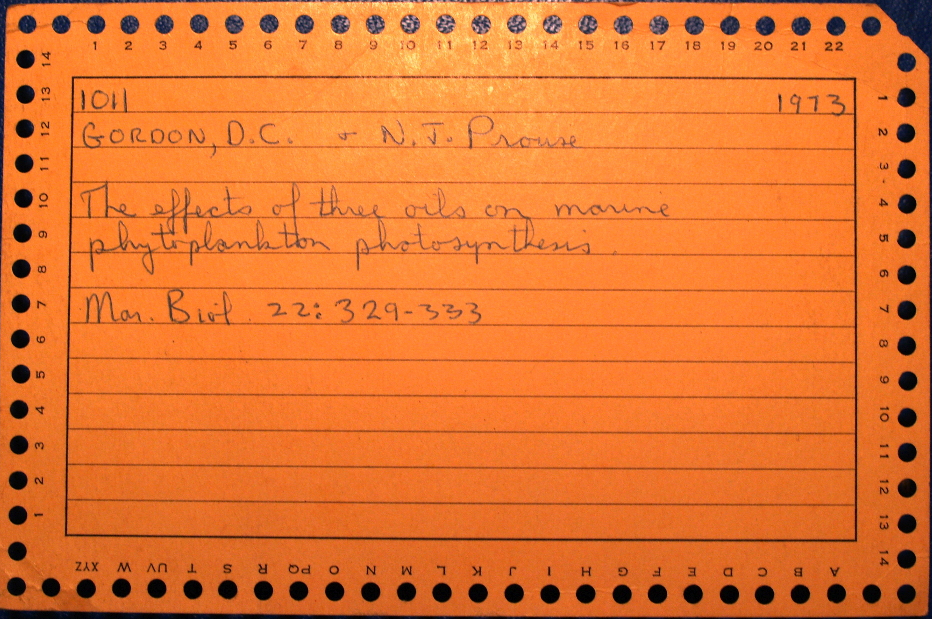 1 2 3 4 5 6 7 8 9 10 11 12 13 14 15 16 17 18 19 20 21 22
14 13 12 11 10 9 8 7 6 5 4 3 2 1
1011 1973
GORDON, D.C. & N.J. Prouse
The effects of three oils on marine
phytoplankton photosynthesis.
Mar. Biol. 22: 329-333
1 2 3 4 5 6 7 8 9 10 11 12 13 14
XYZ W UV T S R PQ O N M L K J I H G F E D C B A